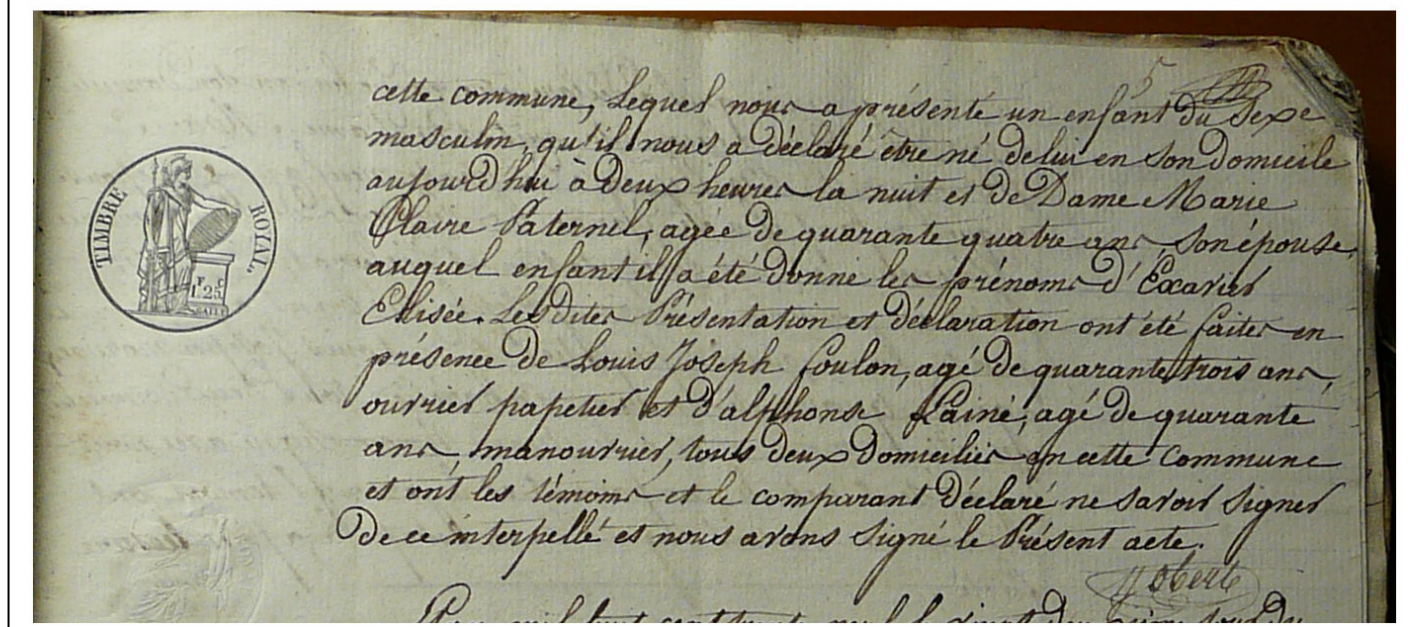 5
TIMBRE ROYAL.
1F 25C
cette commune, Lequel nous a présenté un enfant du Sexe
masculin, qu'il nous a déclaré être né de lui en son domicile
aujourd'hui à Deux heures la nuit et de Dame Marie
Claire Paternel, agée de quarante quatre ans, son épouse,
auquel enfant il a été donné les prénoms d'Exavier
Elisée. Lesdites Présentation et déclaration ont été faites en
présence de Louis Joseph Coulon, agé de quarante trois ans,
ouvrier papetier et d'alphonse Lainé, agé de quarante
ans manouvrier, tous deux Domiciliés en cette Commune
et ont les témoins et le comparant Déclaré ne Savoir Signer
De ce interpellé et nous avons Signé le Présent acte.